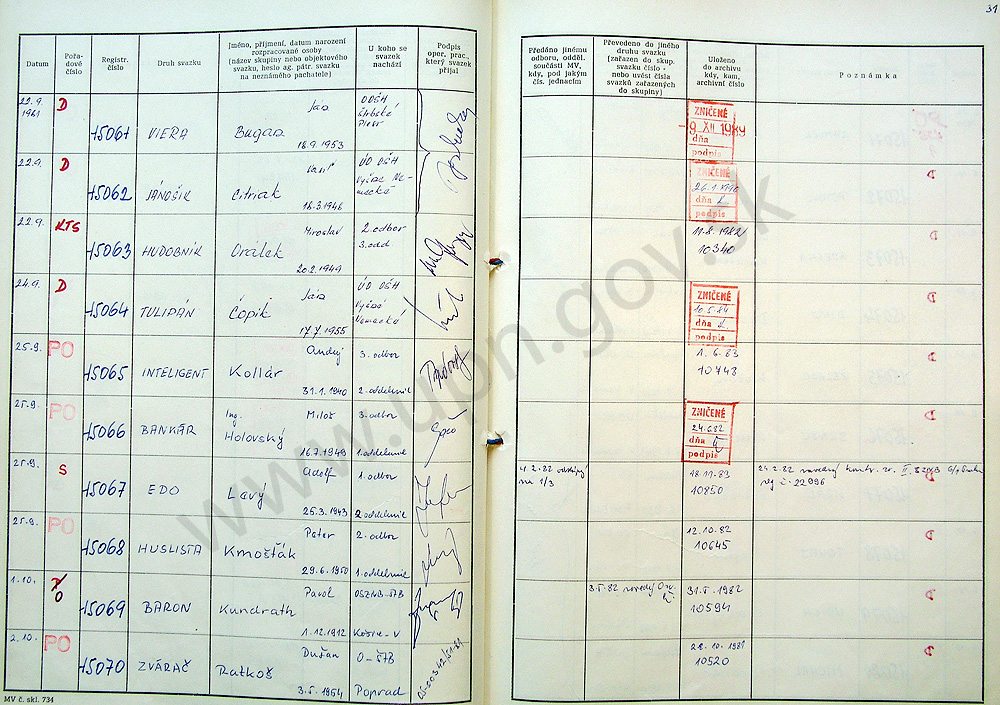 31
Datum
Pořadové číslo
Registr. číslo
Druh svazku
Jméno, příjmení, datum narození
rozpracované osoby
(název skupiny nebo objektového
svazku, heslo ag. pátr. svazku
na neznámého pachatele)
U koho se
svazek
nachází
Podpis
oper. prac.,
který svazek
přijal
Předáno jinému
odboru, odděl.
součásti MV,
kdy, pod jakým
čís. jednacím
Převedeno do jiného
druhu svazku
(zařazen do skup.
svazku číslo -
nebo uvést čísla
svazků zařazených
do skupiny)
Uloženo
do archivu
kdy, kam,
archivní číslo
Poznámka
22.9. 1981 D 15061 VIERA Ján Bugan 18.9.1953 ODŠH
ZNIČENÉ
-9 XII 1989
dňa
podpis
22.9. D 15062 JÁNOŠÍK Citriak 18.3.1946 ÚD OŠH Vyšné Nemecké
ZNIČENÉ
26.1.1990
dňa
podpis
22.9. KTS 15063 HUDOBNÍK Miroslav Oralek 20.2.1949 2. odbor 3. odd
11.8.1982
10340
24.9. D 15064 TULIPÁN Ján Čópik 17.7.1955 ÚD OŠH Vyšné Nemecké
ZNIČENÉ
10.5.84
dňa
podpis
25.9. PO 15065 INTELIGENT Andrej Kollár 31.1.1940 3. odbor 2. oddelenie
1.6.83
10743
25.9. PO 15066 BANKÁR Ing. Miloš Holovský 16.7.1949 3. odbor 1. oddelenie
ZNIČENÉ
24.6.82
dňa
podpis
25.9. S 15067 EDO Adolf Lavý 25.3.1943 1. odbor 2. oddelenie
4.2.82 na 1/3
18.11.83
10850
24.2.82 reg č. 22096
25.9. PO 15068 HUSLISTA Peter Kmošťák 29.6.1950 2. odbor 1. oddelenie
12.10.82
10645
1.10. O 15069 BARON Pavol Kundrath 1.12.1912 Košice-V
31.5.1982
10594
2.10. PO 15070 ZVÁRAČ Dušan Ratkoš 3.5.1954 O-ŠTB Poprad
28.10.1981
10520
MV č. skl. 734
www.upn.gov.sk